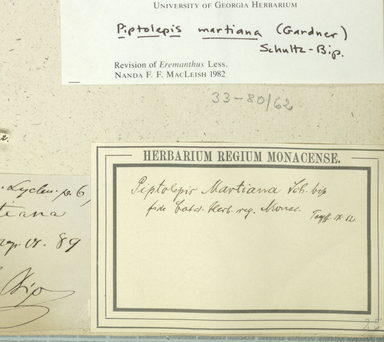 UNIVERSITY OF GEORGIA HERBARIUM
Piptolepis martiana (Gardner)
Schultz-Bip.
Revision of Eremanthus Less.
NANDA F. F. MACLEISH 1982
33-80/62
HERBARIUM REGIUM MONACENSE.
Piptolepis Martiana Sch. bip
fide Catal. Herb. reg. Monac.
Lychn. p. 6,
89
Bip